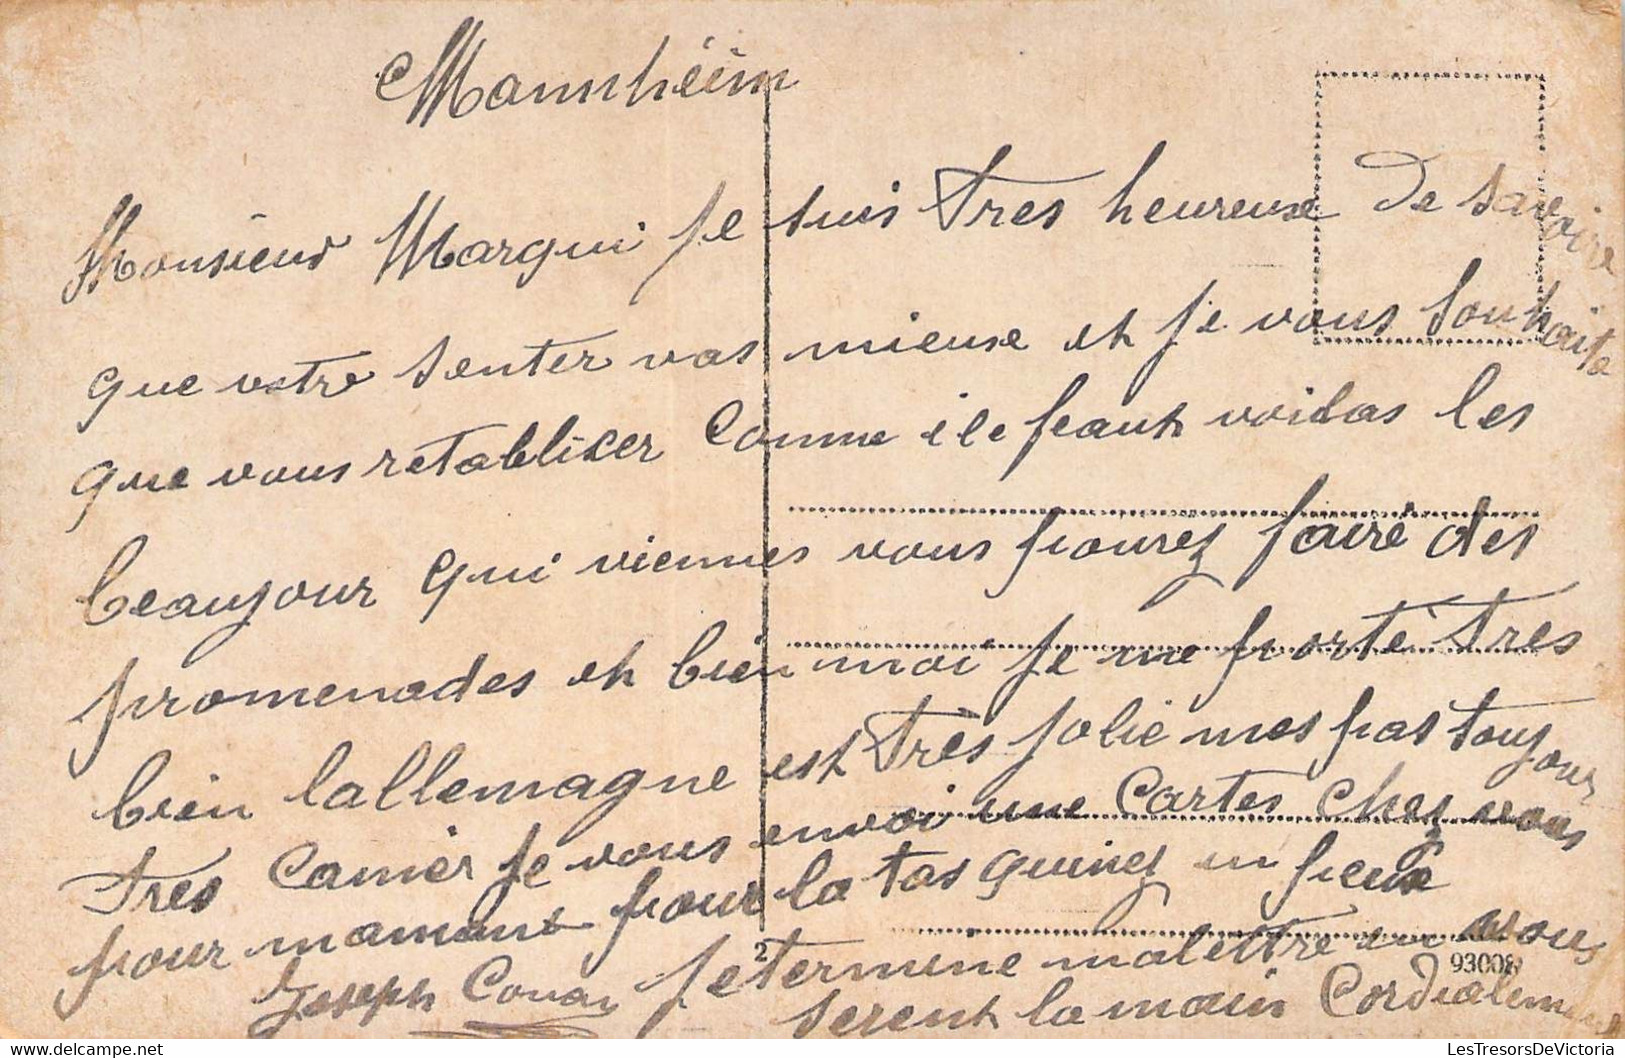 Mannhëim
Monsieur Margui je suis tres heureuse De savoire
que votre senter vas mieuse et je vous souhaite
que vous retabliser comme ile feaut voidas les
beaujour qui viennes vous pourez faire des
promenades et bien moi je me porte tres
bien lallemagne est très jolie mes pas toujour
tres je vous envoi une cartes chez vous
pour mamant pour la tas quinez un peuse
Joseph je termine malettre en vous
serent la main Cordialement
2
93008
LesTresorsDeVictoria